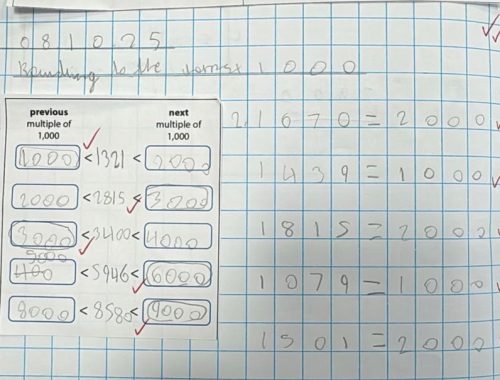 081025
Rounding to the nearest 1000
previous multiple of 1,000
next multiple of 1,000
1000 < 1321 < 2000
2000 < 2815 < 3000
3000 < 3400 < 4000
5000
400 < 5946 < 6000
8000 < 8580 < 9000
2. 1670 = 2000
1439 = 1000
1815 = 2000
1079 = 1000
1501 = 2000